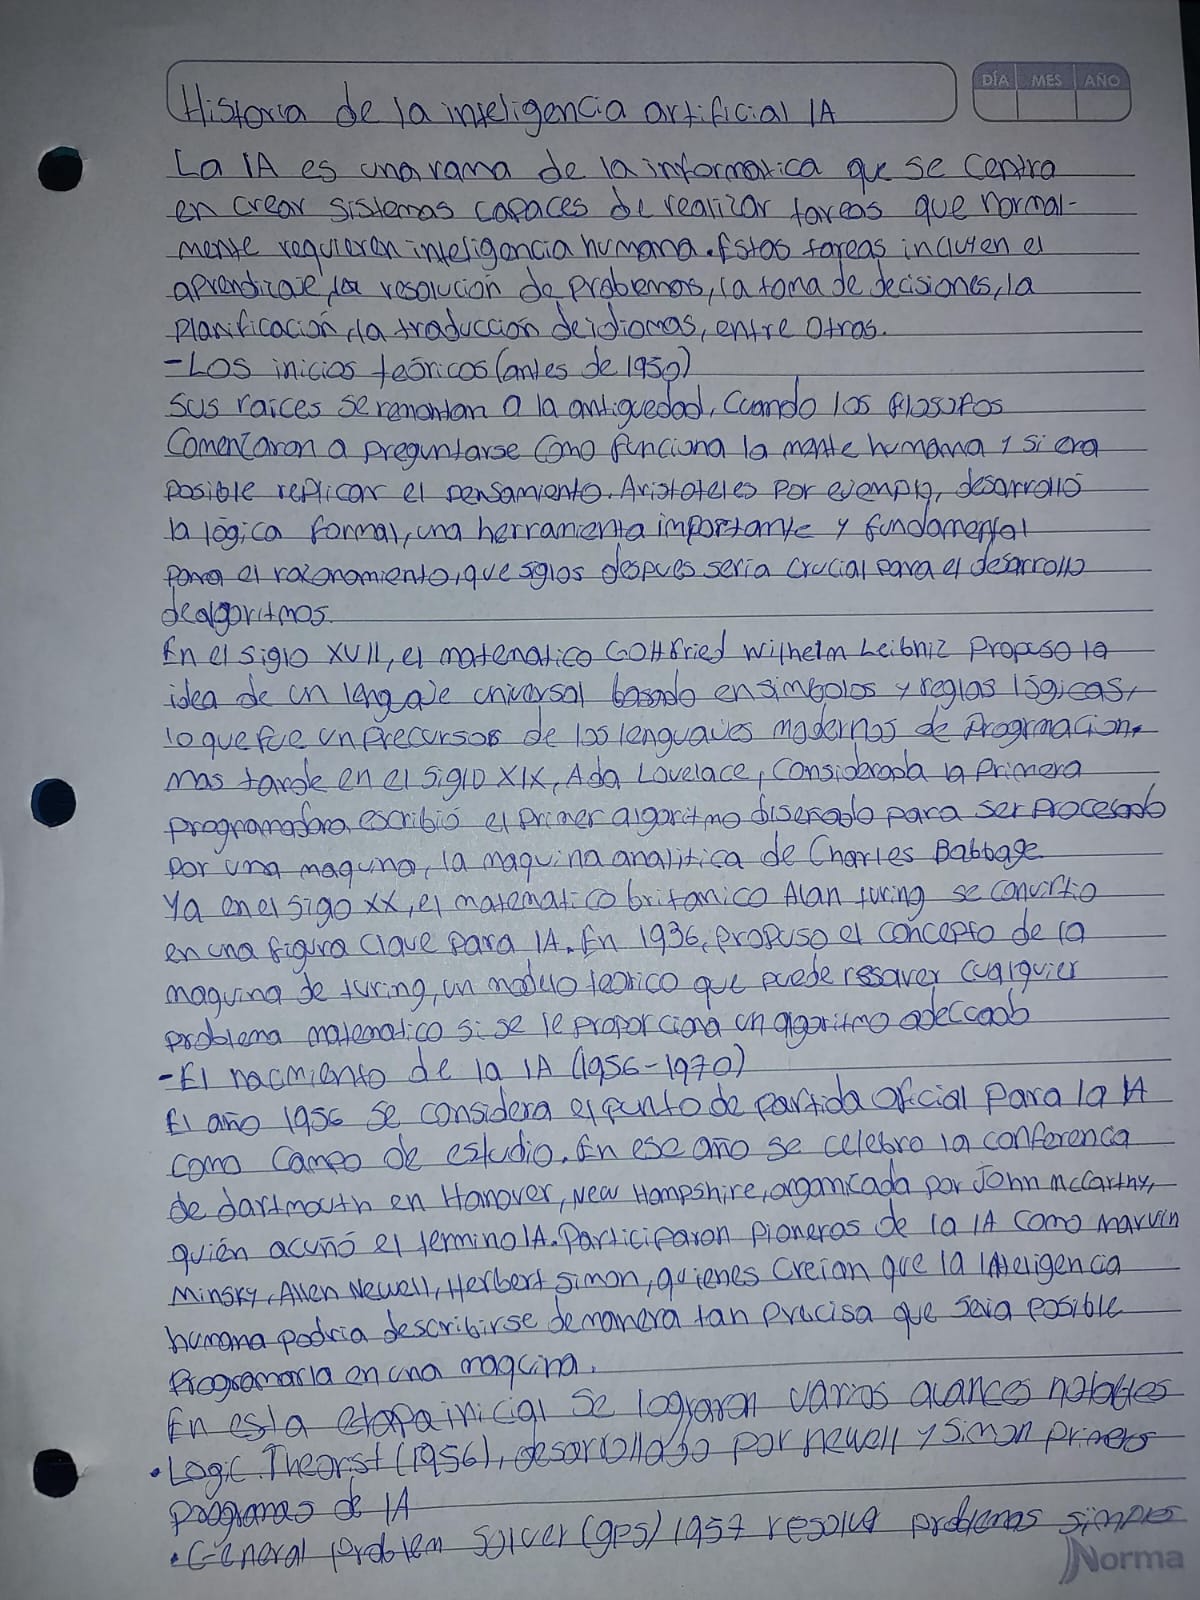 Historia de la inteligencia artificial IA
DÍA MES AÑO
La IA es una rama de la informatica que se centra
en crear sistemas capaces de realizar tareas que normal-
mente requieren inteligencia humana. Estas tareas incluyen el
aprendizaje, la resolución de problemas, la toma de decisiones, la
planificación, la traducción de idiomas, entre otras.
-Los inicios teóricos (antes de 1950)
sus raíces se remontan a la antiguedad, Cuando los filosofos
Comenzaron a preguntarse Como funciona la mente humana y si era
posible replicar el pensamiento. Aristoteles por ejemplo, desarrolló
la lógica formal, una herramienta importante y fundamental
para el razonamiento, que siglos despues sería crucial para el desarrollo
de algoritmos.
En el siglo XVII, el matematico Gottfried Wilhelm Leibniz Propuso la
idea de un lenguaje universal basado en simbolos y reglas lógicas,
lo que fue un precursor de los lenguajes modernos de Programacion.
Mas tarde en el siglo XIX, Ada Lovelace, Considerada la Primera
programadora escribió el primer algoritmo diseñado para ser procesado
por una maquina, la maquina analitica de Charles Babbage
Ya en el sigo XX, el matematico britanico Alan turing se convirtio
en una figura clave para IA. En 1936, propuso el concepto de la
maquina de turing, un modelo teorico que puede resover cualquier
problema matematico si se le proporciona un algoritmo adecuado
-El nacmiento de la IA (1956-1970)
El año 1956 se considera el punto de partida oficial para la IA
como Campo de estudio. En ese año se celebro la conferencia
de dartmouth en Hanover, New Hampshire, organizada por John McCarthy,
quién acuñó el termino IA. Participaron pioneros de la IA como Marvin
Minsky, Allen Newell, Herbert Simon, quienes Creian que la inteligencia
humana podria describirse de manera tan precisa que seria posible
Programarla en una maquina.
En esta etapa inicial se lograron varios avances notables
• Logic Theorist (1956), desarrollado por newell y Simon primeros
programas de IA
• General problem Solver (gps) 1957 resolvia problemas simples
Norma